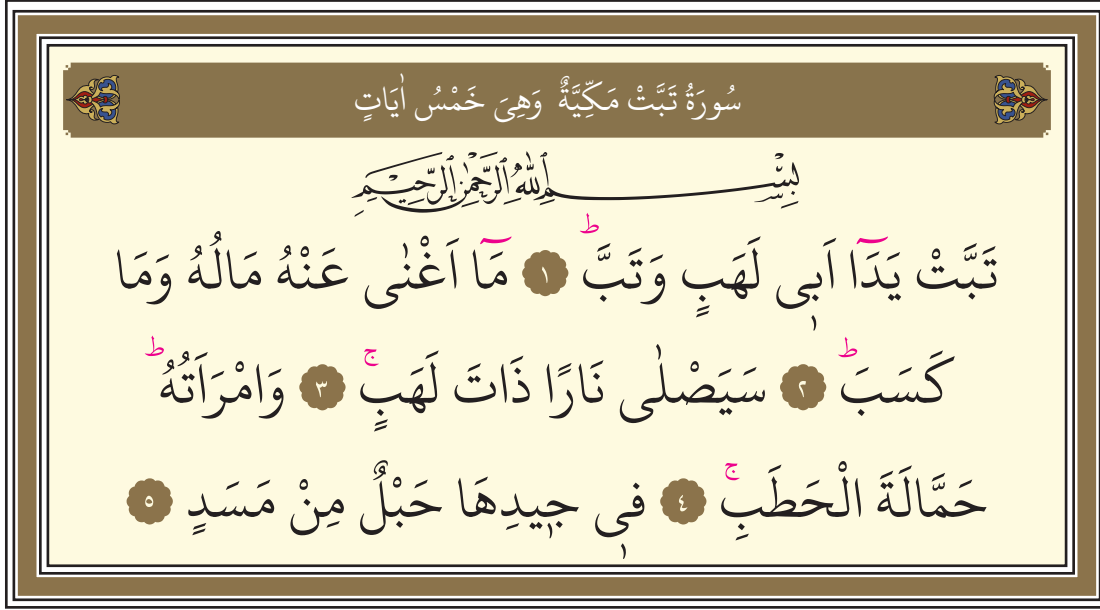 سُورَةُ تَبَّتْ مَكِّيَّةٌ وَهِىَ خَمْسُ اٰيَاتٍ
بِسْمِ اللّٰهِ الرَّحْمٰنِ الرَّحِيمِ
تَبَّتْ يَدَٓا اَبٖى لَهَبٍ وَتَبَّؕ ﴿١﴾ مَٓا اَغْنٰى عَنْهُ مَالُهُ وَمَا
كَسَبَؕ ﴿٢﴾ سَيَصْلٰى نَارًا ذَاتَ لَهَبٍۚ ﴿٣﴾ وَامْرَاَتُهُؕ
حَمَّالَةَ الْحَطَبِۚ ﴿٤﴾ فٖى جٖيدِهَا حَبْلٌ مِنْ مَسَدٍ ﴿٥﴾